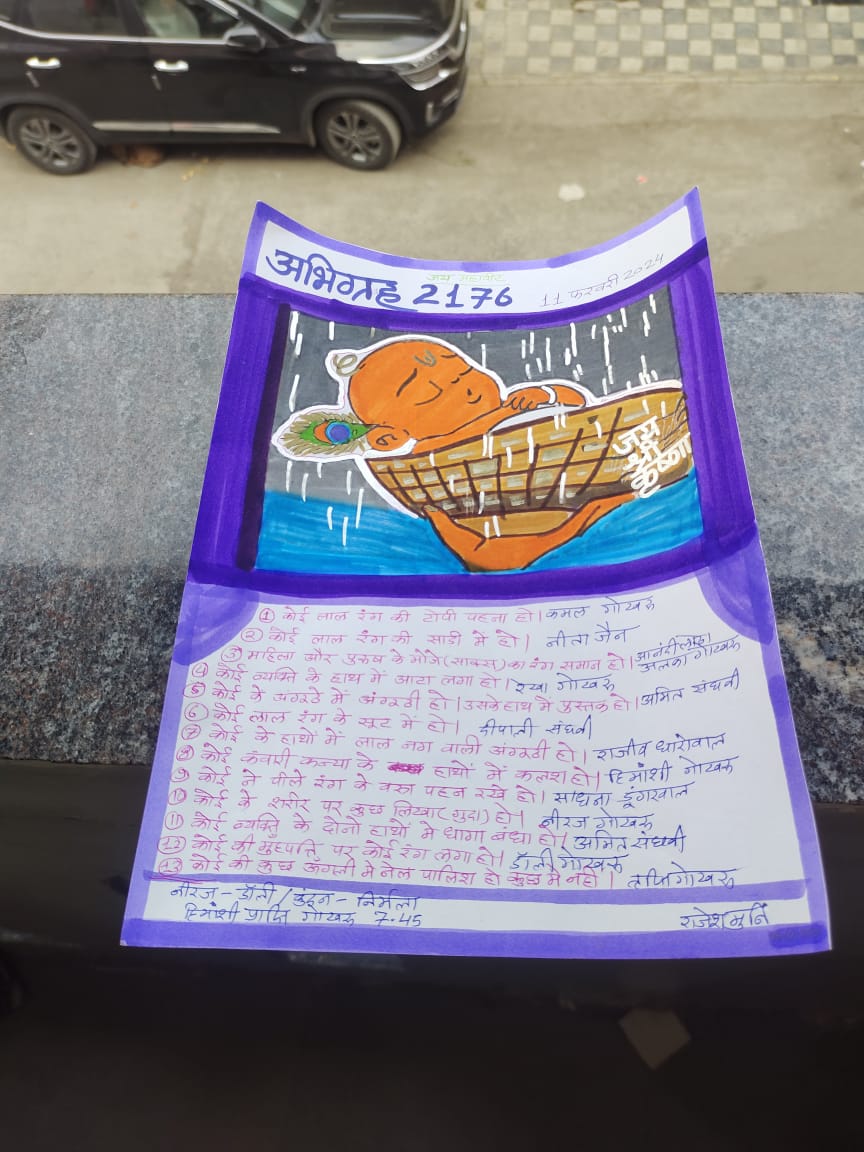 जय महावीर
अभिग्रह 2176
11 फरवरी 2024
जय
श्री
कृष्णा
① कोई लाल रंग की टोपी पहना हो। कमल गोखरु
② कोई लाल रंग की साडी मे हो। नीता जैन
③ महिला और पुरुष के मोजे (साक्स) का रंग समान हो। अलका गोखरु
④ कोई व्यक्ति के हाथ में आटा लगा हो। रेखा गोखरु
⑤ कोई के अंगूठे में अंगूठी हो। उसके हाथ में पुस्तक हो। अमित संघवी
⑥ कोई लाल रंग के सूट में हो। दीपाली संघवी
⑦ कोई के हाथों में लाल नग वाली अंगूठी हो। राजीव धारीवाल
⑧ कोई कंवारी कन्या के हाथों में कलश हो। हिमांशी गोखरु
⑨ कोई ने पीले रंग के वस्त्र पहन रखे हो। साधना डूंगरवाल
⑩ कोई के शरीर पर कुछ लिखा (गुदा) हो। नीरज गोखरु
⑪ कोई व्यक्ति के दोनो हाथों मे धागा बंधा हो। अमित संघवी
⑫ कोई की मुहपत्ति पर कोई रंग लगा हो। डॉली गोखरु
⑬ कोई की कुछ अंगुली मे नेल पालिश हो कुछ मे नही। गोखरु
नीरज - डॉली / कुंदन - निर्मला
हिमांशी प्राप्ति गोखरु 7-45
राजेश मुनि